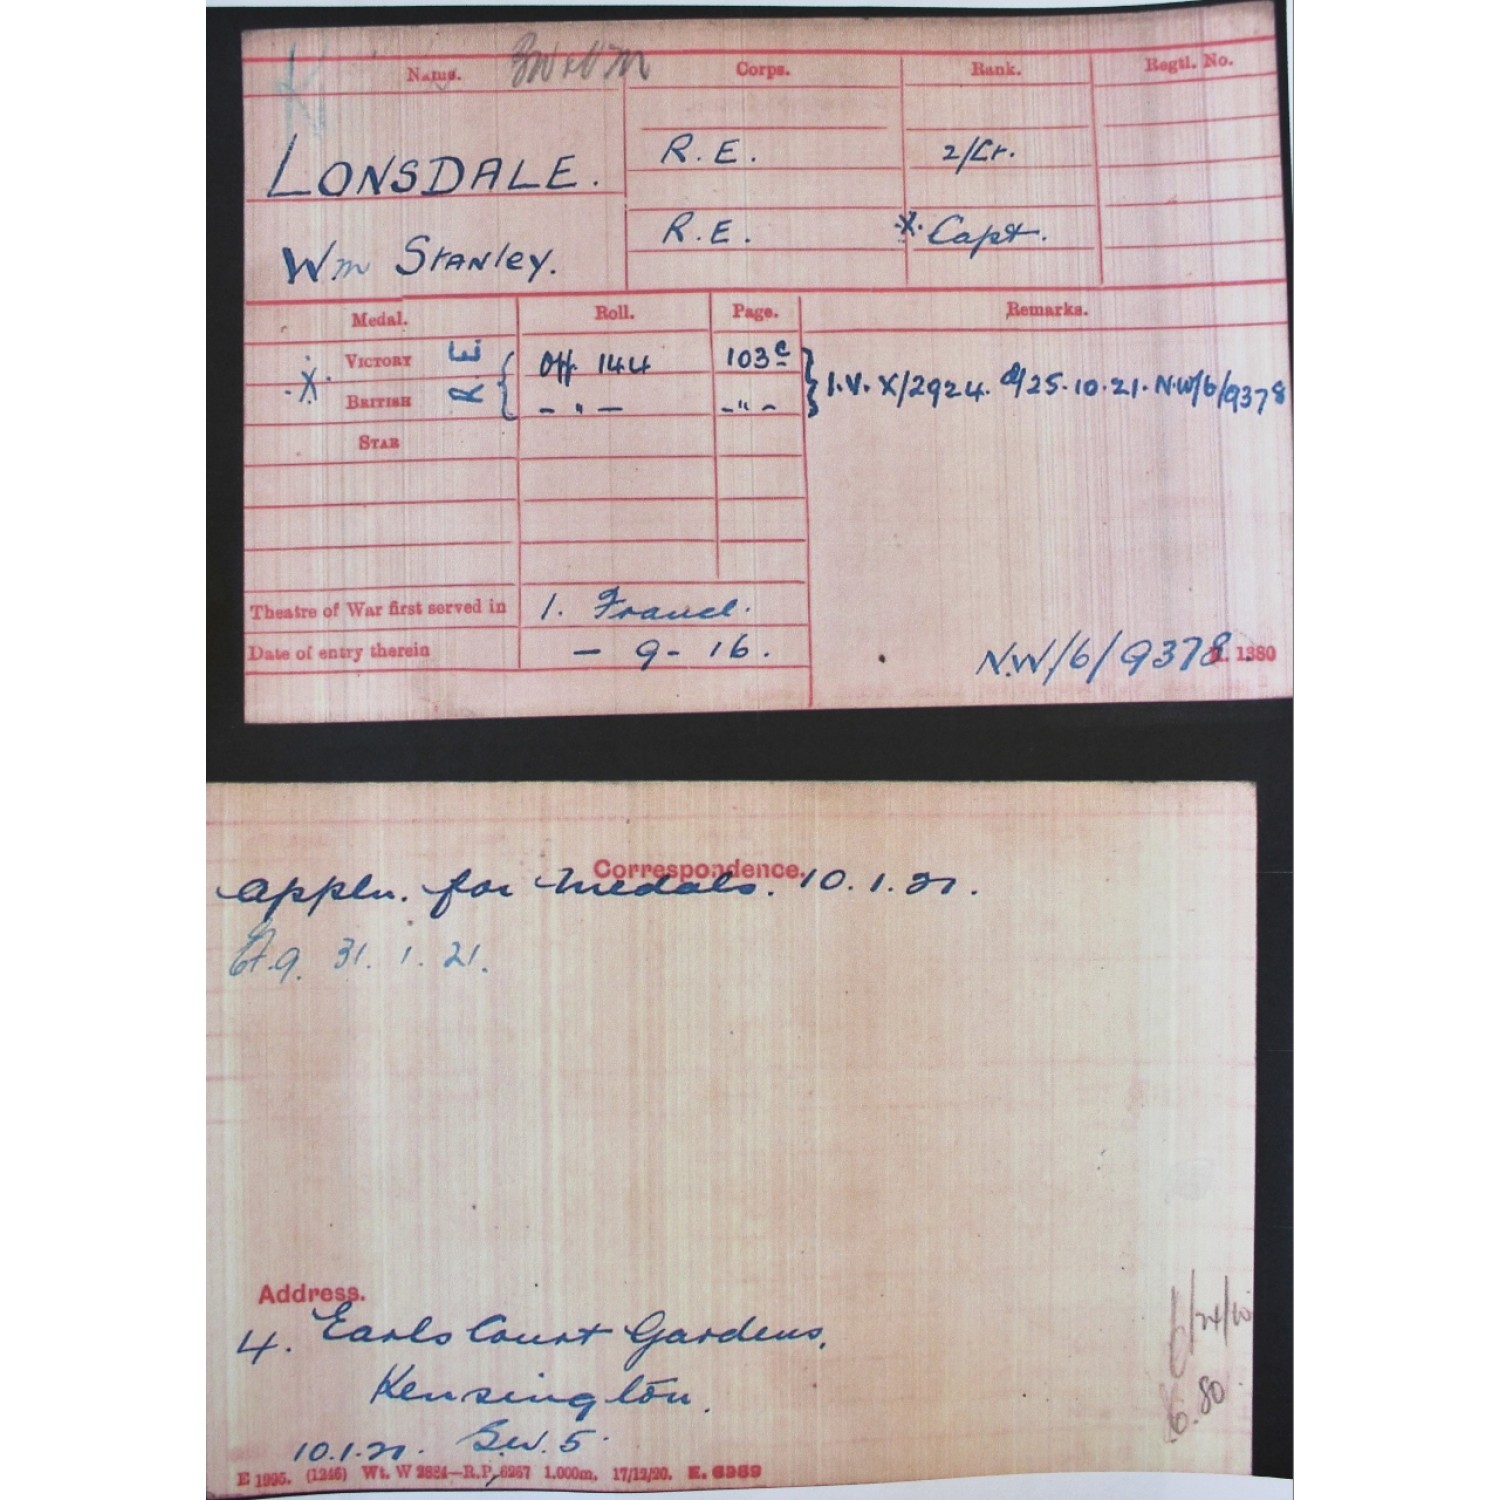 Name. BW & VM Corps. Rank. Regtl. No.
LONSDALE. R.E. 2/Lt.
Wm Stanley. R.E. X. Capt.
Medal. Roll. Page. Remarks.
X. VICTORY R.E. { Off 144 103c } I.V. X/2924. d/25.10.21. N.W/6/9378
BRITISH - " - - " -
STAR
Theatre of War first served in 1. France.
Date of entry therein - 9 - 16.
N.W/6/9378. K. 1380
Correspondence.
Appln. for Medals. 10.1.21.
31. 1. 21.
Address.
4. Earls Court Gardens,
Kensington.
10.1.21. S.W. 5.
6.80.
E 1995. (1246) Wt. W 2884—R.P. 6267 1,000m. 17/12/20. E. 6959